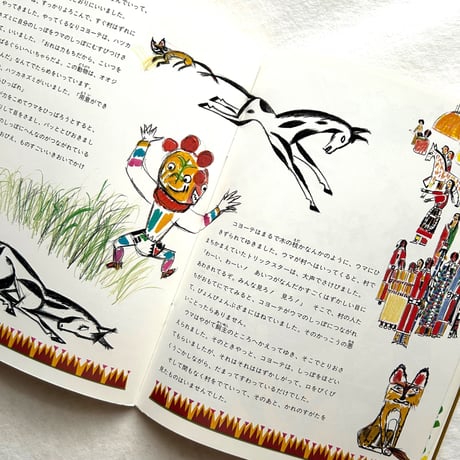 いって、
は、すっかりよろこんで、すぐ村はずれに
やってきました。やってくるなりコヨーテは、ハツカ
ネズミに自分のしっぽをウマのしっぽにむすびつけさ
いいました。「おれは力もちだから、こいつを
ぱるぐらいへいちゃらだよ。この動物は、オオジ
んだ」なんてでたらめをいっています。
ハツカネズミがいいました。「用意ができ
っぱれ」
力をこめてウマをひっぱろうとすると、
して目をさまし、パッととびおきまし
のしっぽにへんなのがつながっている
おびえ、ものすごいいきおいでかけ
コヨーテはまるで木の枝かなんかのように、ウマにひ
きずられてゆきました。ウマが村へはいってくると、村で
まちかまえていたトリックスターは、大声でさけびました。
「わーい、わーい！　あいつがなんだかすごくはずかしい目に
あわされてるぞ。みんな見ろ、見ろ！」　そこで、村の人た
ちがおもてにでてみると、コヨーテがウマのしっぽにつながれ
て、ぴょんぴょんぶざまにはねていました。そのかっこうの悪
いことったらありません。
ウマはやがて飼主のところへかえってゆき、そこでとりおさ
えられました。そのときやっと、コヨーテは、しっぽをほどい
てもらいましたが、それはそれははずかしがって、口をひくひ
くうごかしながら、だまってすわっているだけでした。
そして間もなく村をでていって、そのあと、かれのすがたを
見たものはいませんでした。